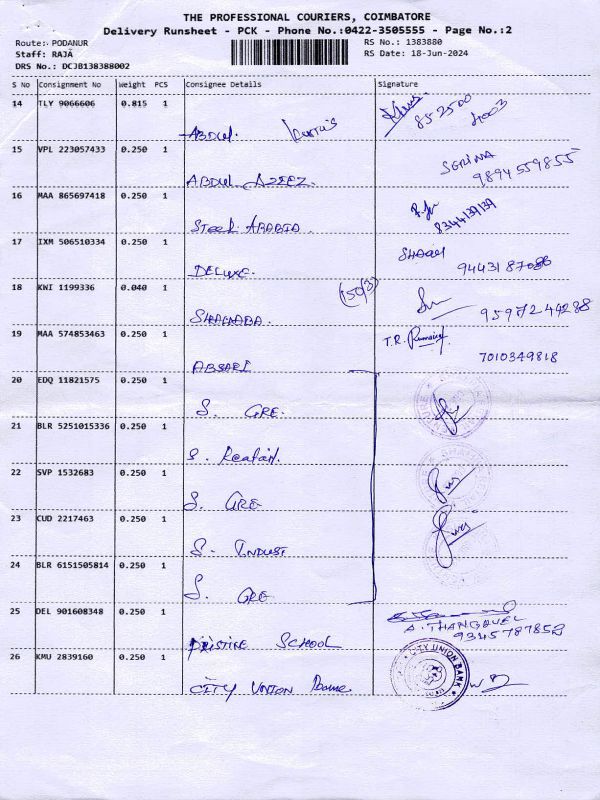 THE PROFESSIONAL COURIERS, COIMBATORE
Delivery Runsheet - PCK - Phone No.:0422-3505555 - Page No.:2
Route: PODANUR
RS No.: 1383880
Staff: RAJA
RS Date: 18-Jun-2024
DRS No.: DCJB138388002
S No Consignment No Weight PCS Consignee Details Signature
14 TLY 9066606 0.815 1 ABDUL 852500 4003
15 VPL 223057433 0.250 1 ABDUL AZEEZ. 9894559855
16 MAA 865697418 0.250 1 STEEL ARABIA. 8344139139
17 IXM 506510334 0.250 1 DELUXE. 9443187086
18 KWI 1199336 0.040 1 SHAHABA. (150/3) 9597244288
19 MAA 574853463 0.250 1 ABSARI T.R. 7010349818
20 EDQ 11821575 0.250 1 S. GRE.
21 BLR 5251015336 0.250 1 S.
22 SVP 1532683 0.250 1 S. GRE
23 CUD 2217463 0.250 1 S. INDUST
24 BLR 6151505814 0.250 1 S. GRE
25 DEL 901608348 0.250 1 PRISTINE SCHOOL A. THANGAVEL
9345787852
26 KMU 2839160 0.250 1 CITY UNION CITY UNION BANK